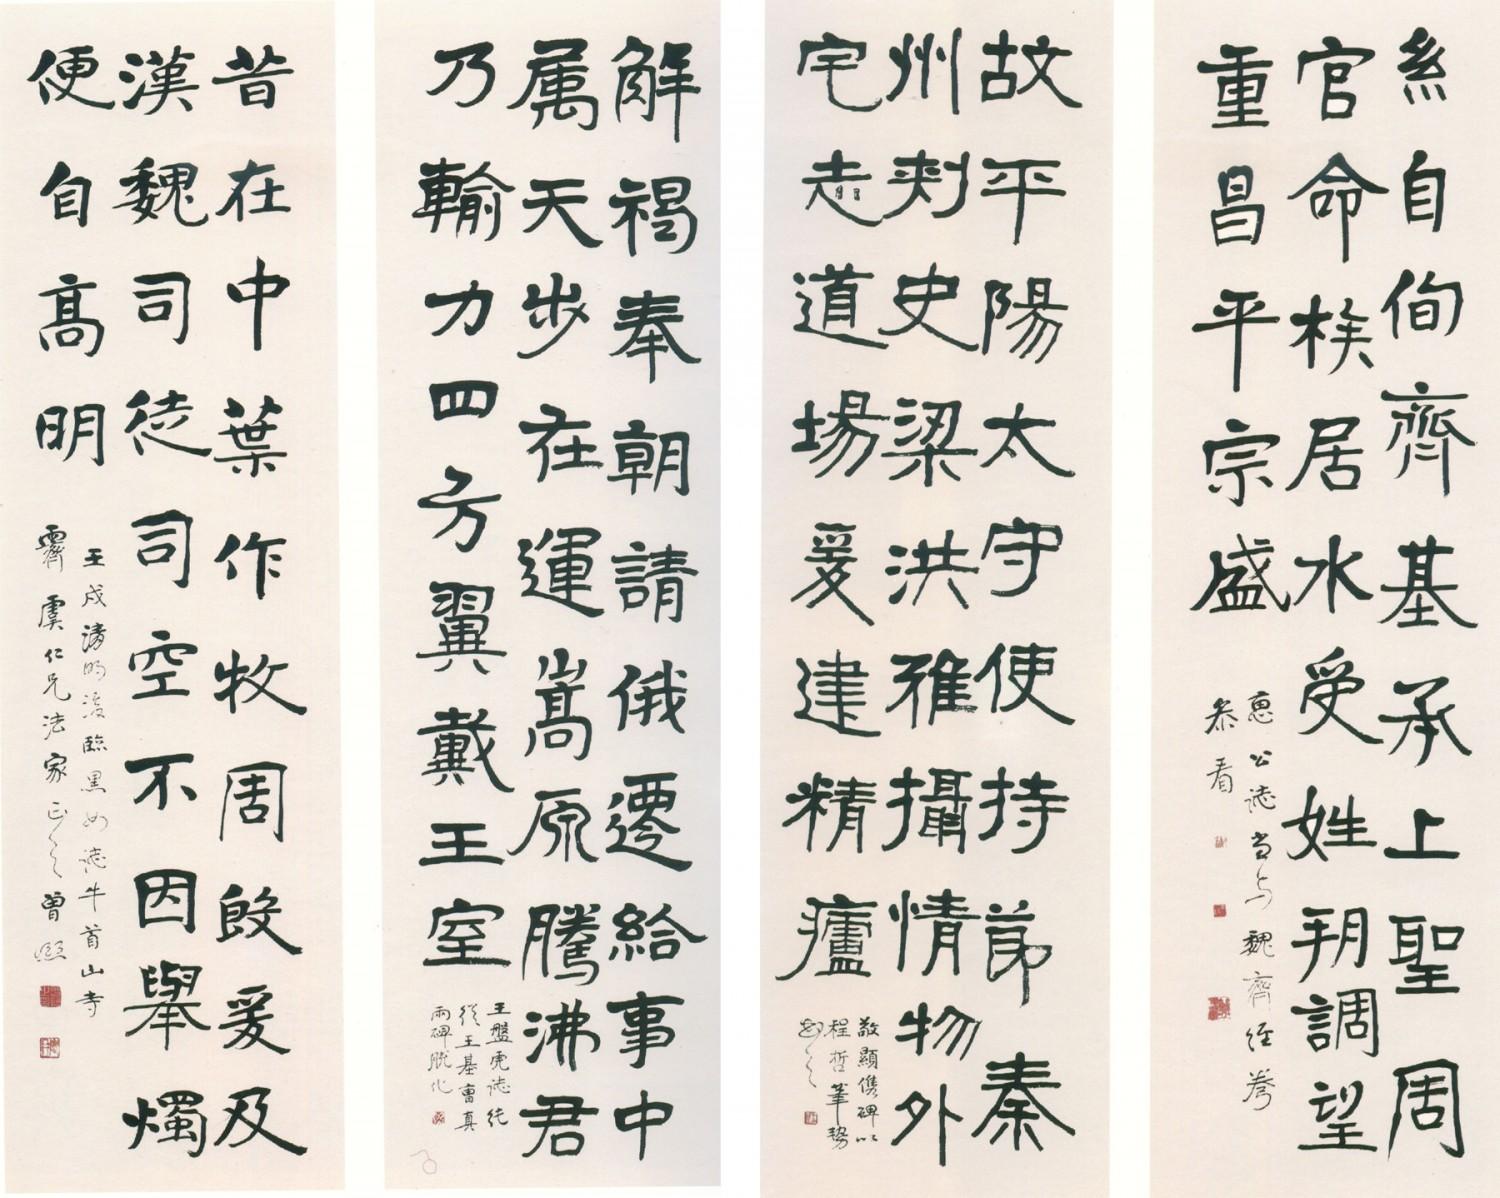 糸自侚齊基承上聖周
官命族居水受姓調望
重昌平宗盛
惠公誌當与魏齊經
參看
故平陽太守使持節秦
州刺史梁洪雅攝情物外
宅志道場爰建精廬
敬顯儁碑以
程哲筆勢
為之
解褐奉朝請俄遷給事中
属天步在運嵩原騰沸君
乃輸力四方翼戴王室
王盤虎誌純
從王基曹真
兩碑脫化
昔在中葉作牧周殷爰及
漢魏司徒司空不因舉燭
便自高明
壬戌清明後臨黑女誌牛首山寺
霽虞仁兄法家正之曾熙